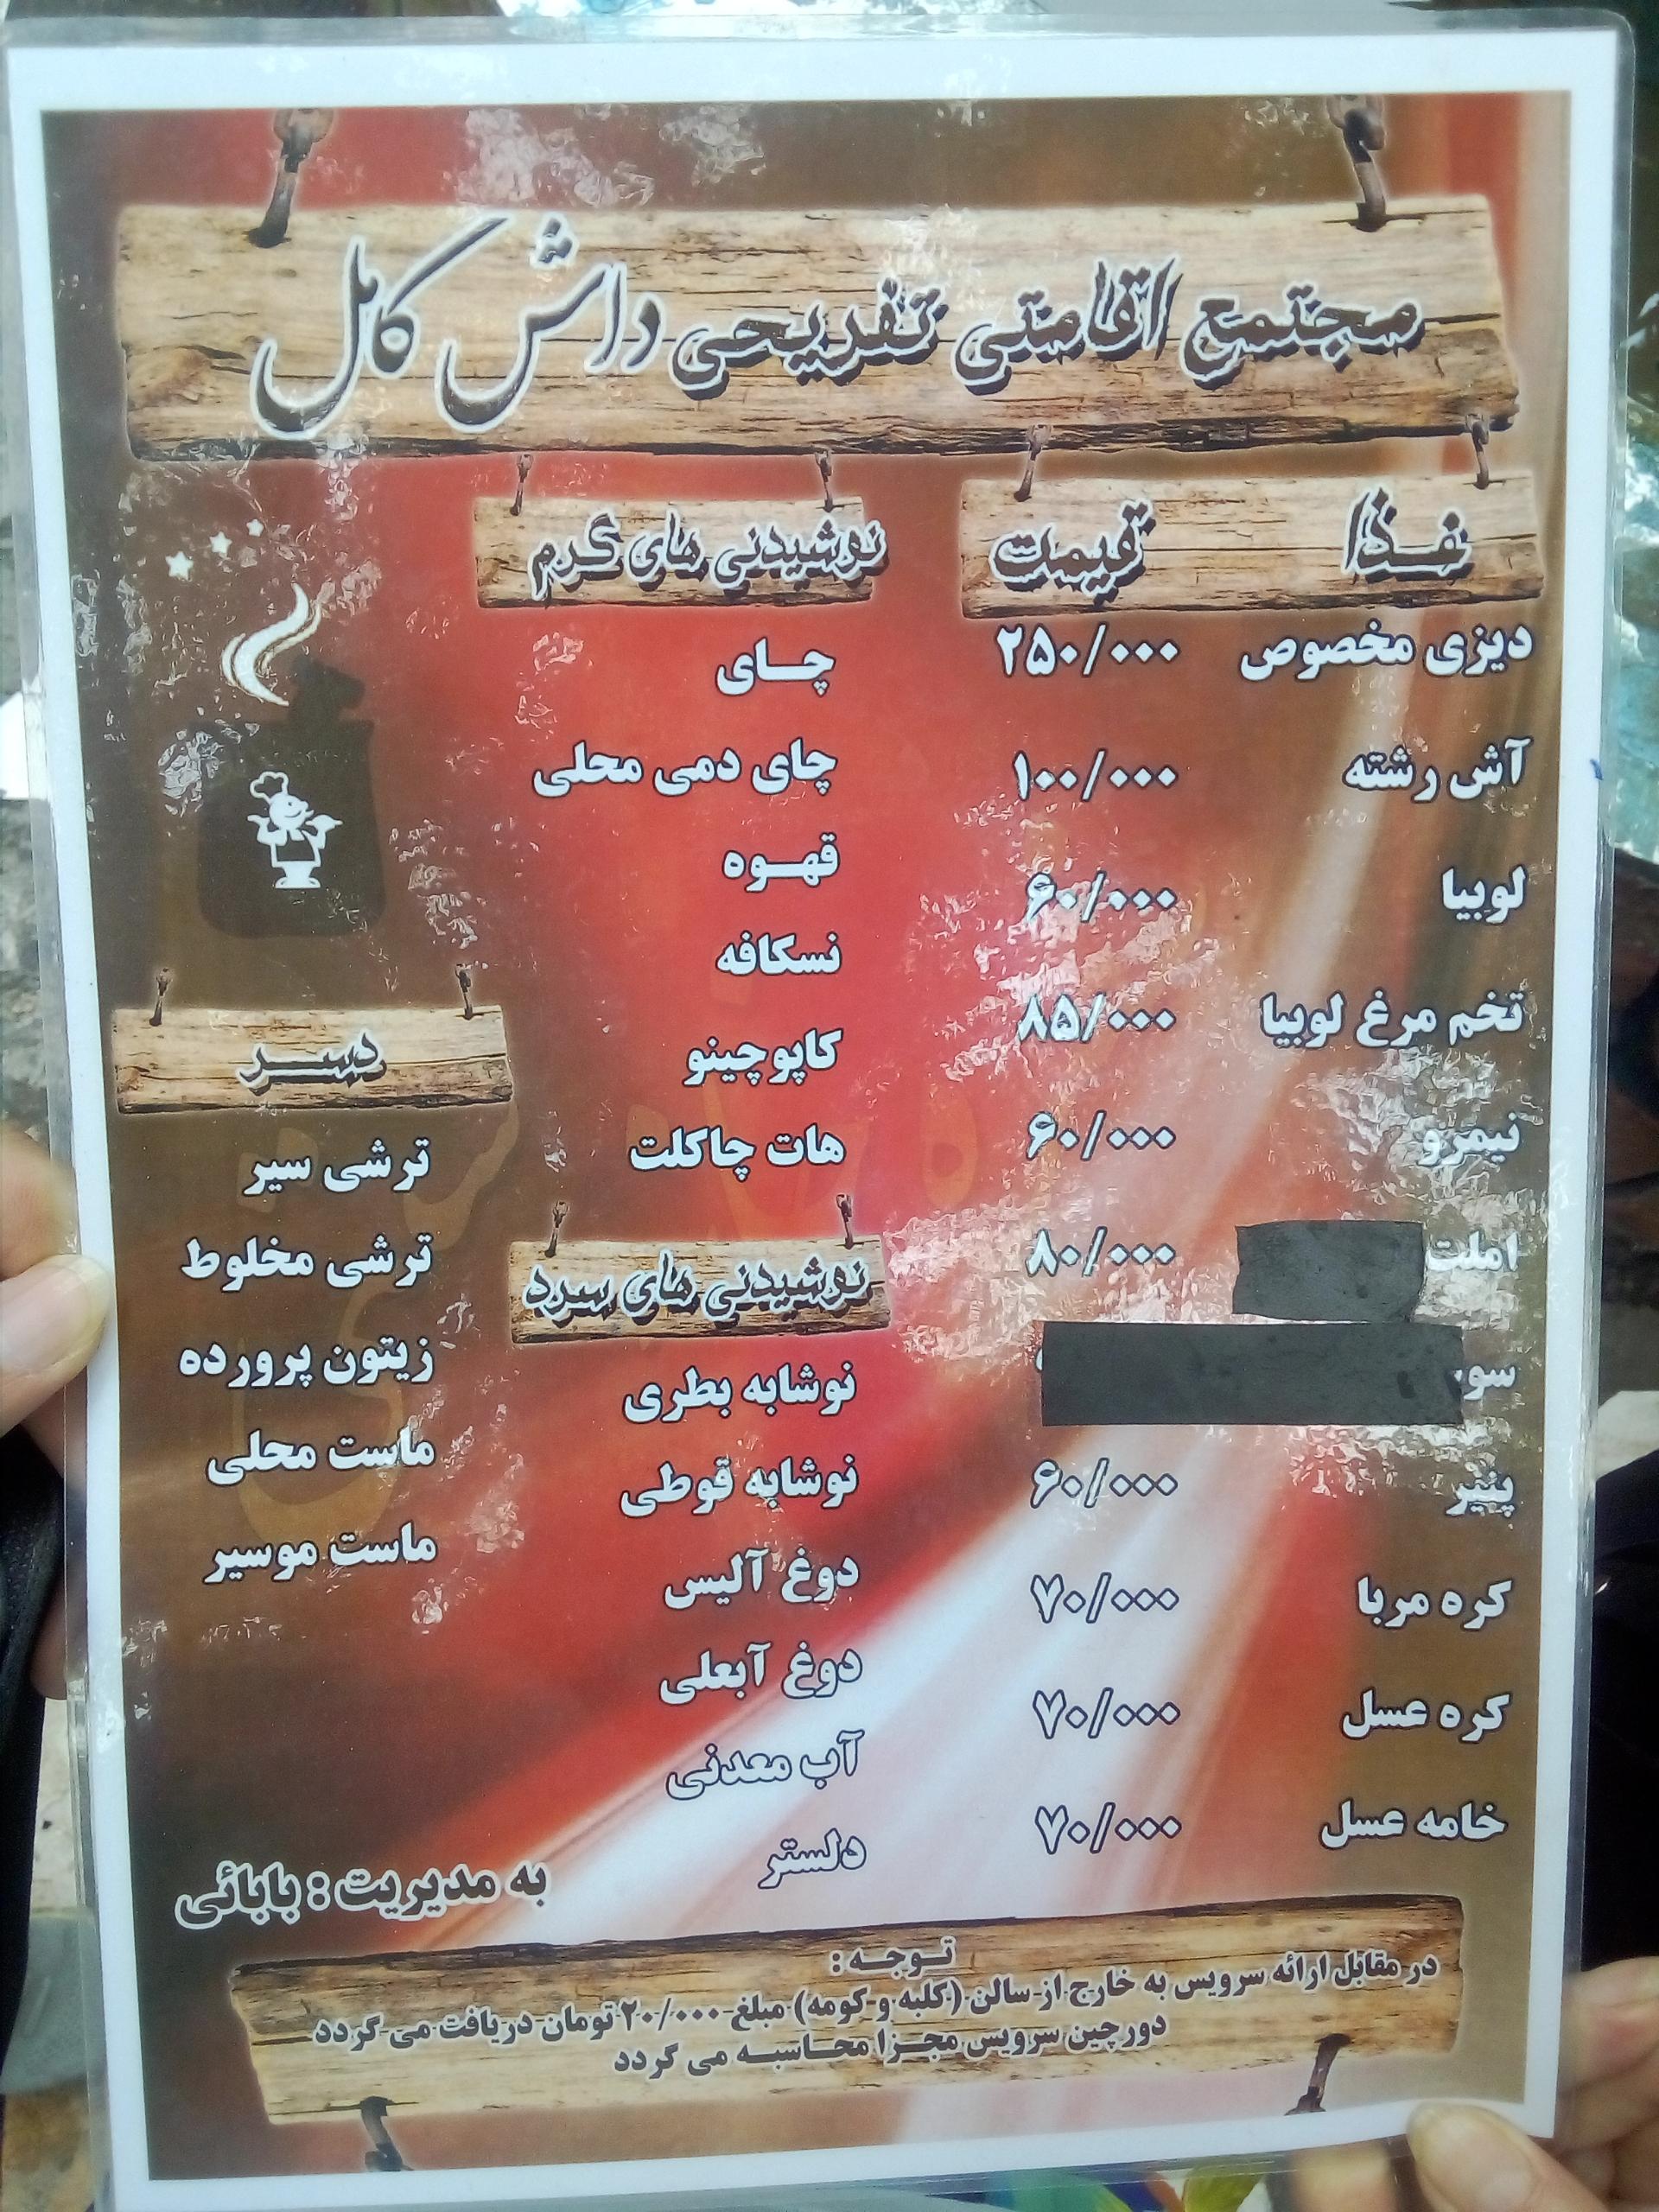 مجتمع اقامتی تفریحی داش کامل
غذا قیمت
دیزی مخصوص ۲۵۰/۰۰۰
آش رشته ۱۰۰/۰۰۰
لوبیا ۶۰/۰۰۰
تخم مرغ لوبیا ۸۵/۰۰۰
نیمرو ۶۰/۰۰۰
املت ۸۰/۰۰۰
پنیر ۶۰/۰۰۰
کره مربا ۷۰/۰۰۰
کره عسل ۷۰/۰۰۰
خامه عسل ۷۰/۰۰۰
نوشیدنی های گرم
چای
چای دمی محلی
قهوه
نسکافه
کاپوچینو
هات چاکلت
نوشیدنی های سرد
نوشابه بطری
نوشابه قوطی
دوغ آلیس
دوغ آبعلی
آب معدنی
دلستر
دسر
ترشی سیر
ترشی مخلوط
زیتون پرورده
ماست محلی
ماست موسیر
به مدیریت : بابائی
توجه :
در مقابل ارائه سرویس به خارج از سالن (کلبه و کومه) مبلغ ۲۰/۰۰۰ تومان دریافت می گردد
دورچین سرویس مجزا محاسبه می گردد